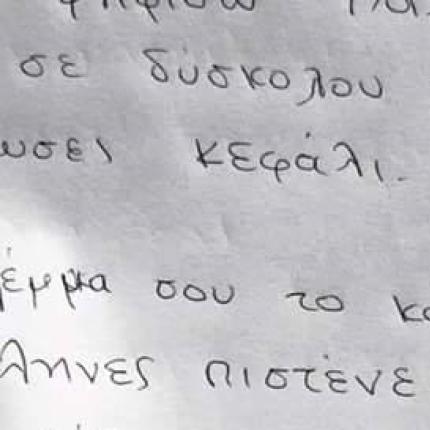 σε δύσκολου
υσει κεφάλι.
έμμα σου το κα
ληνες πιστένε